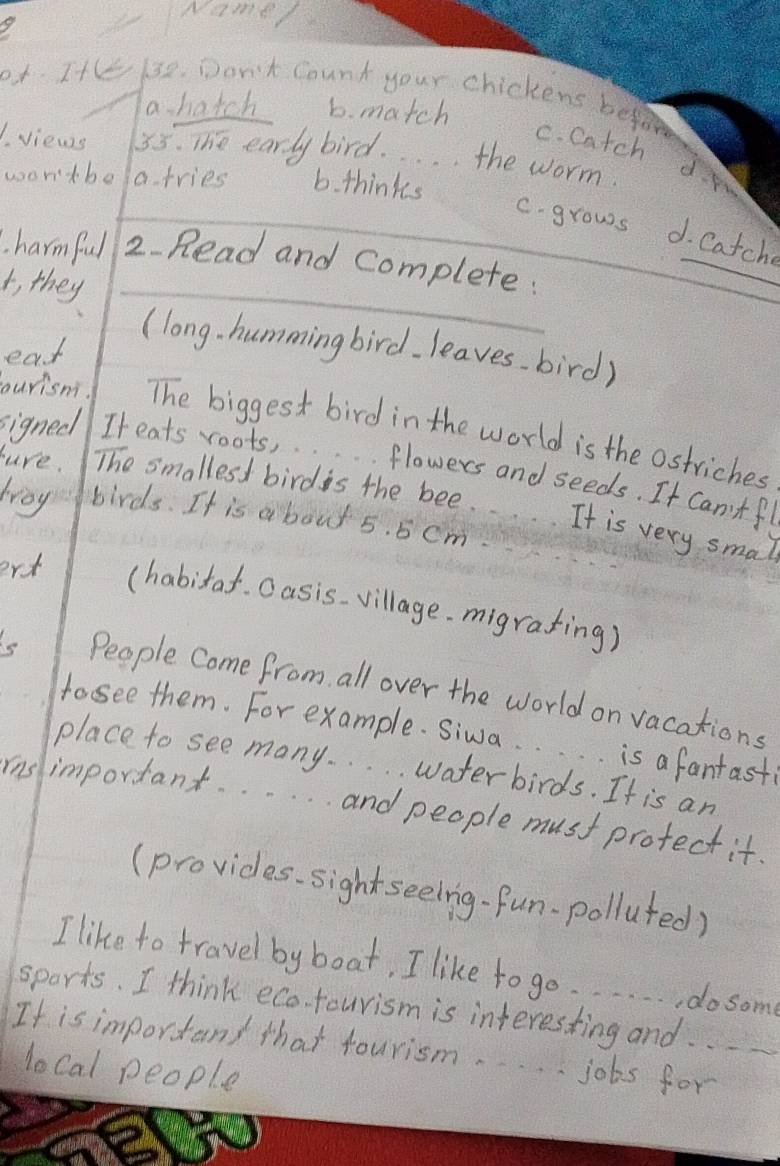 Name/
32. Don't Count your chickens before
a. hatch b. match c. Catch d.
33. The early bird. .... the worm.
a. tries b. thinks c. grows d. Catche
views
won't be
harmful
t, they
eat
ourism.
signed
ture.
troy
ert
ts
rns
2- Read and Complete:
(long - hummingbird - leaves - bird)
The biggest bird in the world is the ostriches.
It eats roots, ..... flowers and seeds. It can't fl
The smallest bird is the bee ..... It is very small
birds. It is about 5.5 cm .......
(habitat. Oasis - village - migrating)
People Come from all over the world on vacations
to see them. For example. Siwa ..... is a fantasti
place to see many ..... water birds. It is an
important ...... and people must protect it.
(provides - sightseeing - fun - polluted)
I like to travel by boat. I like to go ......, do some
sports. I think eco-tourism is interesting and .....
It is important that tourism ..... jobs for
local people